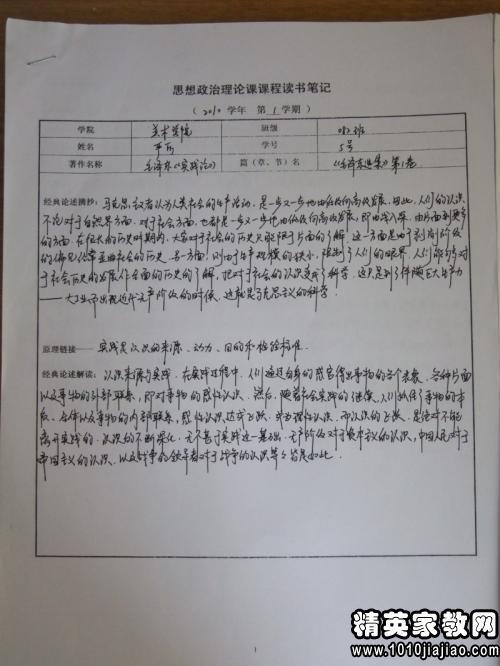 思想政治理论课课程读书笔记
（2010 学年 第 1 学期）
学院 美术学院 班级
姓名 学号 5号
著作名称 毛泽东《实践论》 篇（章、节）名 《毛泽东选集》第1卷
经典论述摘抄：马克思主义者认为人类社会的生产活动，是一步又一步地由低级向高级发展，因此，人们的认识，
不论对于自然界方面，对于社会方面，也都是一步又一步地由低级向高级发展，即由浅入深，由片面到更多
的方面。在很长的历史时期内，大家对于社会的历史只能限于片面的了解，这一方面是由于剥削阶级
的偏见经常歪曲社会的历史，另一方面，则由于生产规模的狭小，限制了人们的眼界。人们能够对
于社会历史的发展作全面的历史的了解，把对于社会的认识变成了科学，这只是到了伴随巨大生产力
——大工业而出现近代无产阶级的时候，这就是马克思主义的科学。
原理链接—— 实践是认识的来源、动力、目的和检验标准。
经典论述解读：认识来源于实践。在实践过程中，人们通过自身的感官得出事物的各个表象、各种片面
以及事物的外部联系，即对事物的感性认识。然后，随着社会实践的继续，人们抓住了事物的本
质、全体以及事物的内部联系，感性认识达成飞跃，成为理性认识。而认识的飞跃，是绝对不能
离开实践的。认识的不断深化，无不基于实践这一基础。无产阶级对于资本主义的认识，中国人民对于
帝国主义的认识，以及战争的领导者对于战争的认识等等皆是如此。
1
精英家教网
http://www.1010jiajiao.com